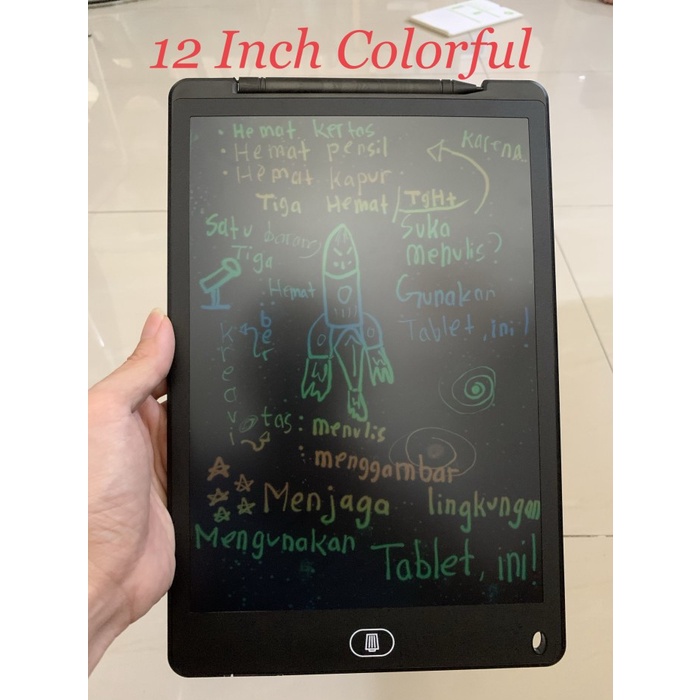 12 Inch Colorful
• Hemat kertas
• Hemat pensil
• Hemat kapur
Karena
Tiga Hemat TgH+
Satu barang
Tiga
Hemat
Suka
menulis?
Gunakan
Tablet, ini!
ber
kreavi
tas : menulis
: menggambar
Menjaga lingkungan
Mengunakan Tablet, ini!